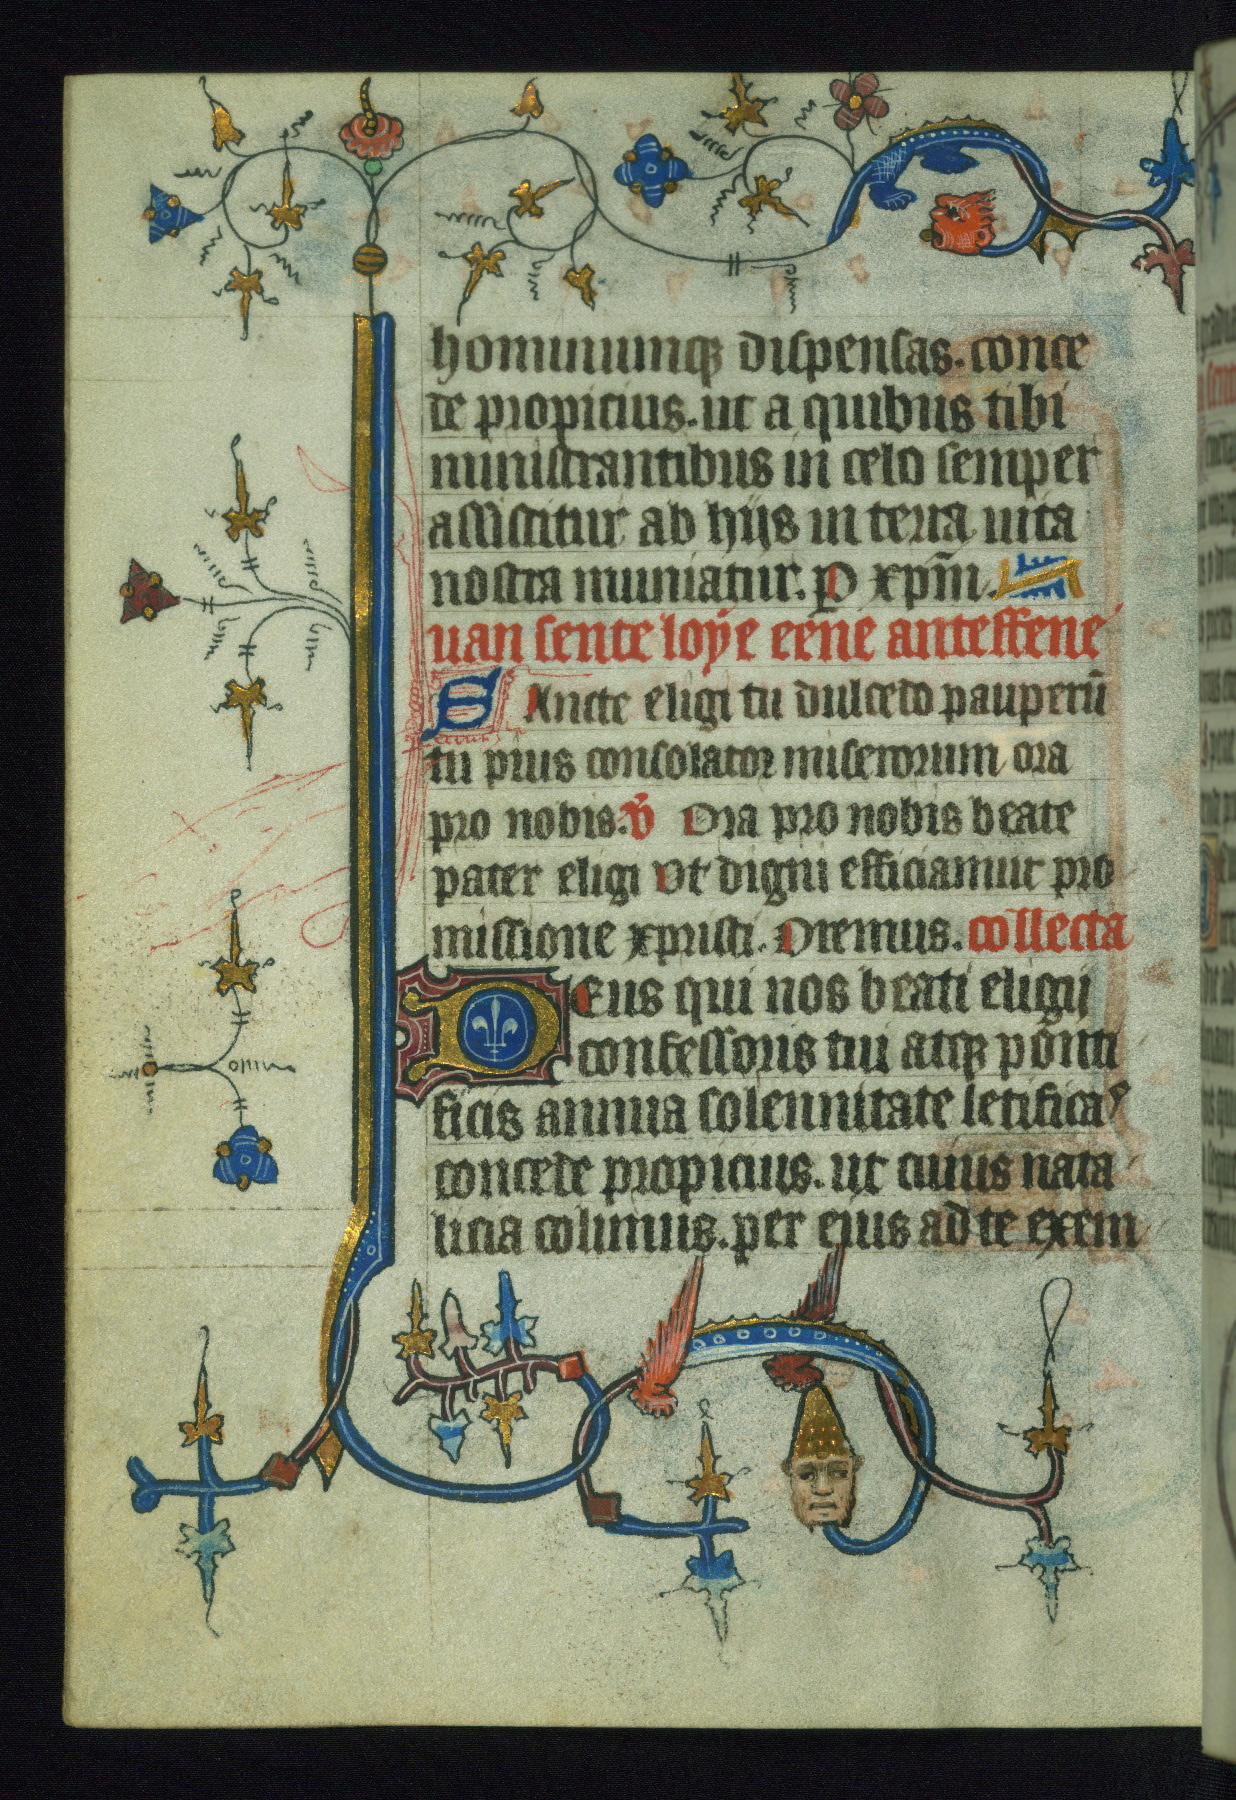 hominumq; dispensas. conce
de propicius. ut a quibus tibi
ministrantibus in celo semper
assistitur ab hijs in terra uita
nostra muniatur. P xpm̄.
uan sente loÿe eene anteffene
SAncte eligi tu dulcedo pauperū
tu pius consolator miserorum ora
pro nobis. v̄ Ora pro nobis beate
pater eligi Vt digni efficiamur pro
missione xpristi. Oremus. collecta
DEus qui nos beati eligij
confessoris tui atq; ponti
ficis annua solennitate letificas
concede propicius. ut cuius nata
licia colimus. per eius ad te exem